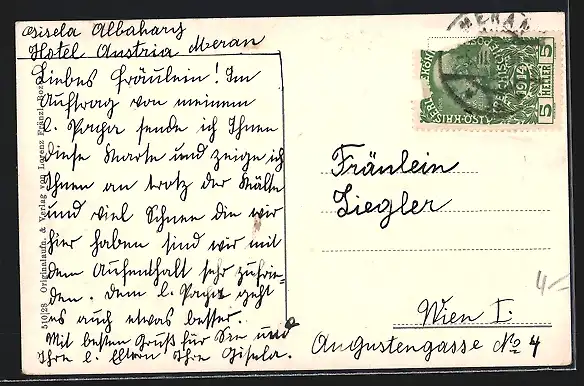 Gisela Albahary
Hotel Austria Meran
Liebes Fräulein! Im
Auftrag von meinem
l. Papa sende ich Ihnen
diese Karte und zeige ich
Ihnen an trotz der Kälte
und viel Schnee die wir
hier haben sind wir mit
dem Aufenthalt sehr zufrie-
den. Dem l. Papa geht
es auch etwas besser.
Mit besten Gruß für Sie und
Ihre l. Eltern Ihre Gisela.
510/28 Originalaufn. & Verlag von Lorenz Fränzl, Boz
MERAN
1914
5 HELLER 5
Fräulein
Ziegler
Wien I.
Augustengasse No 4
4-